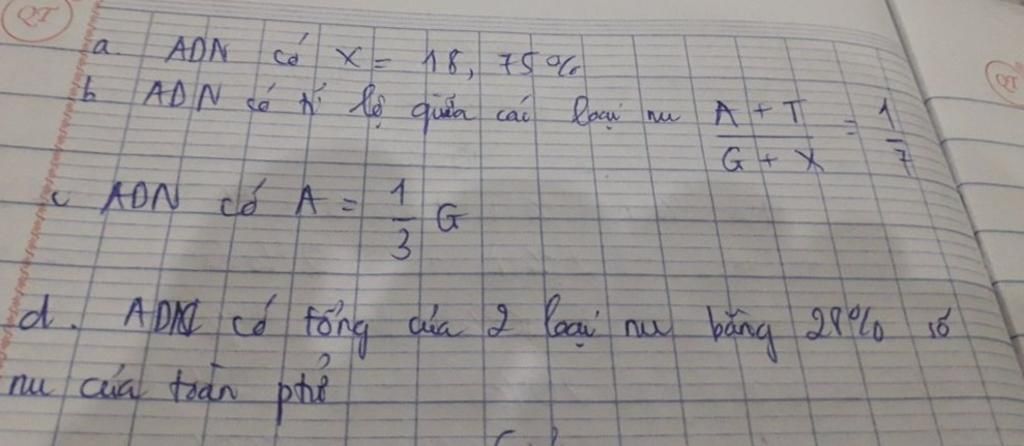 QT
a. ADN có X = 18,75%
b ADN có tỉ lệ giữa các loại nu A + T / G + X = 1 / 7
c ADN có A = 1 / 3 G
d. ADN có tổng của 2 loại nu bằng 28% số
nu của toàn phế